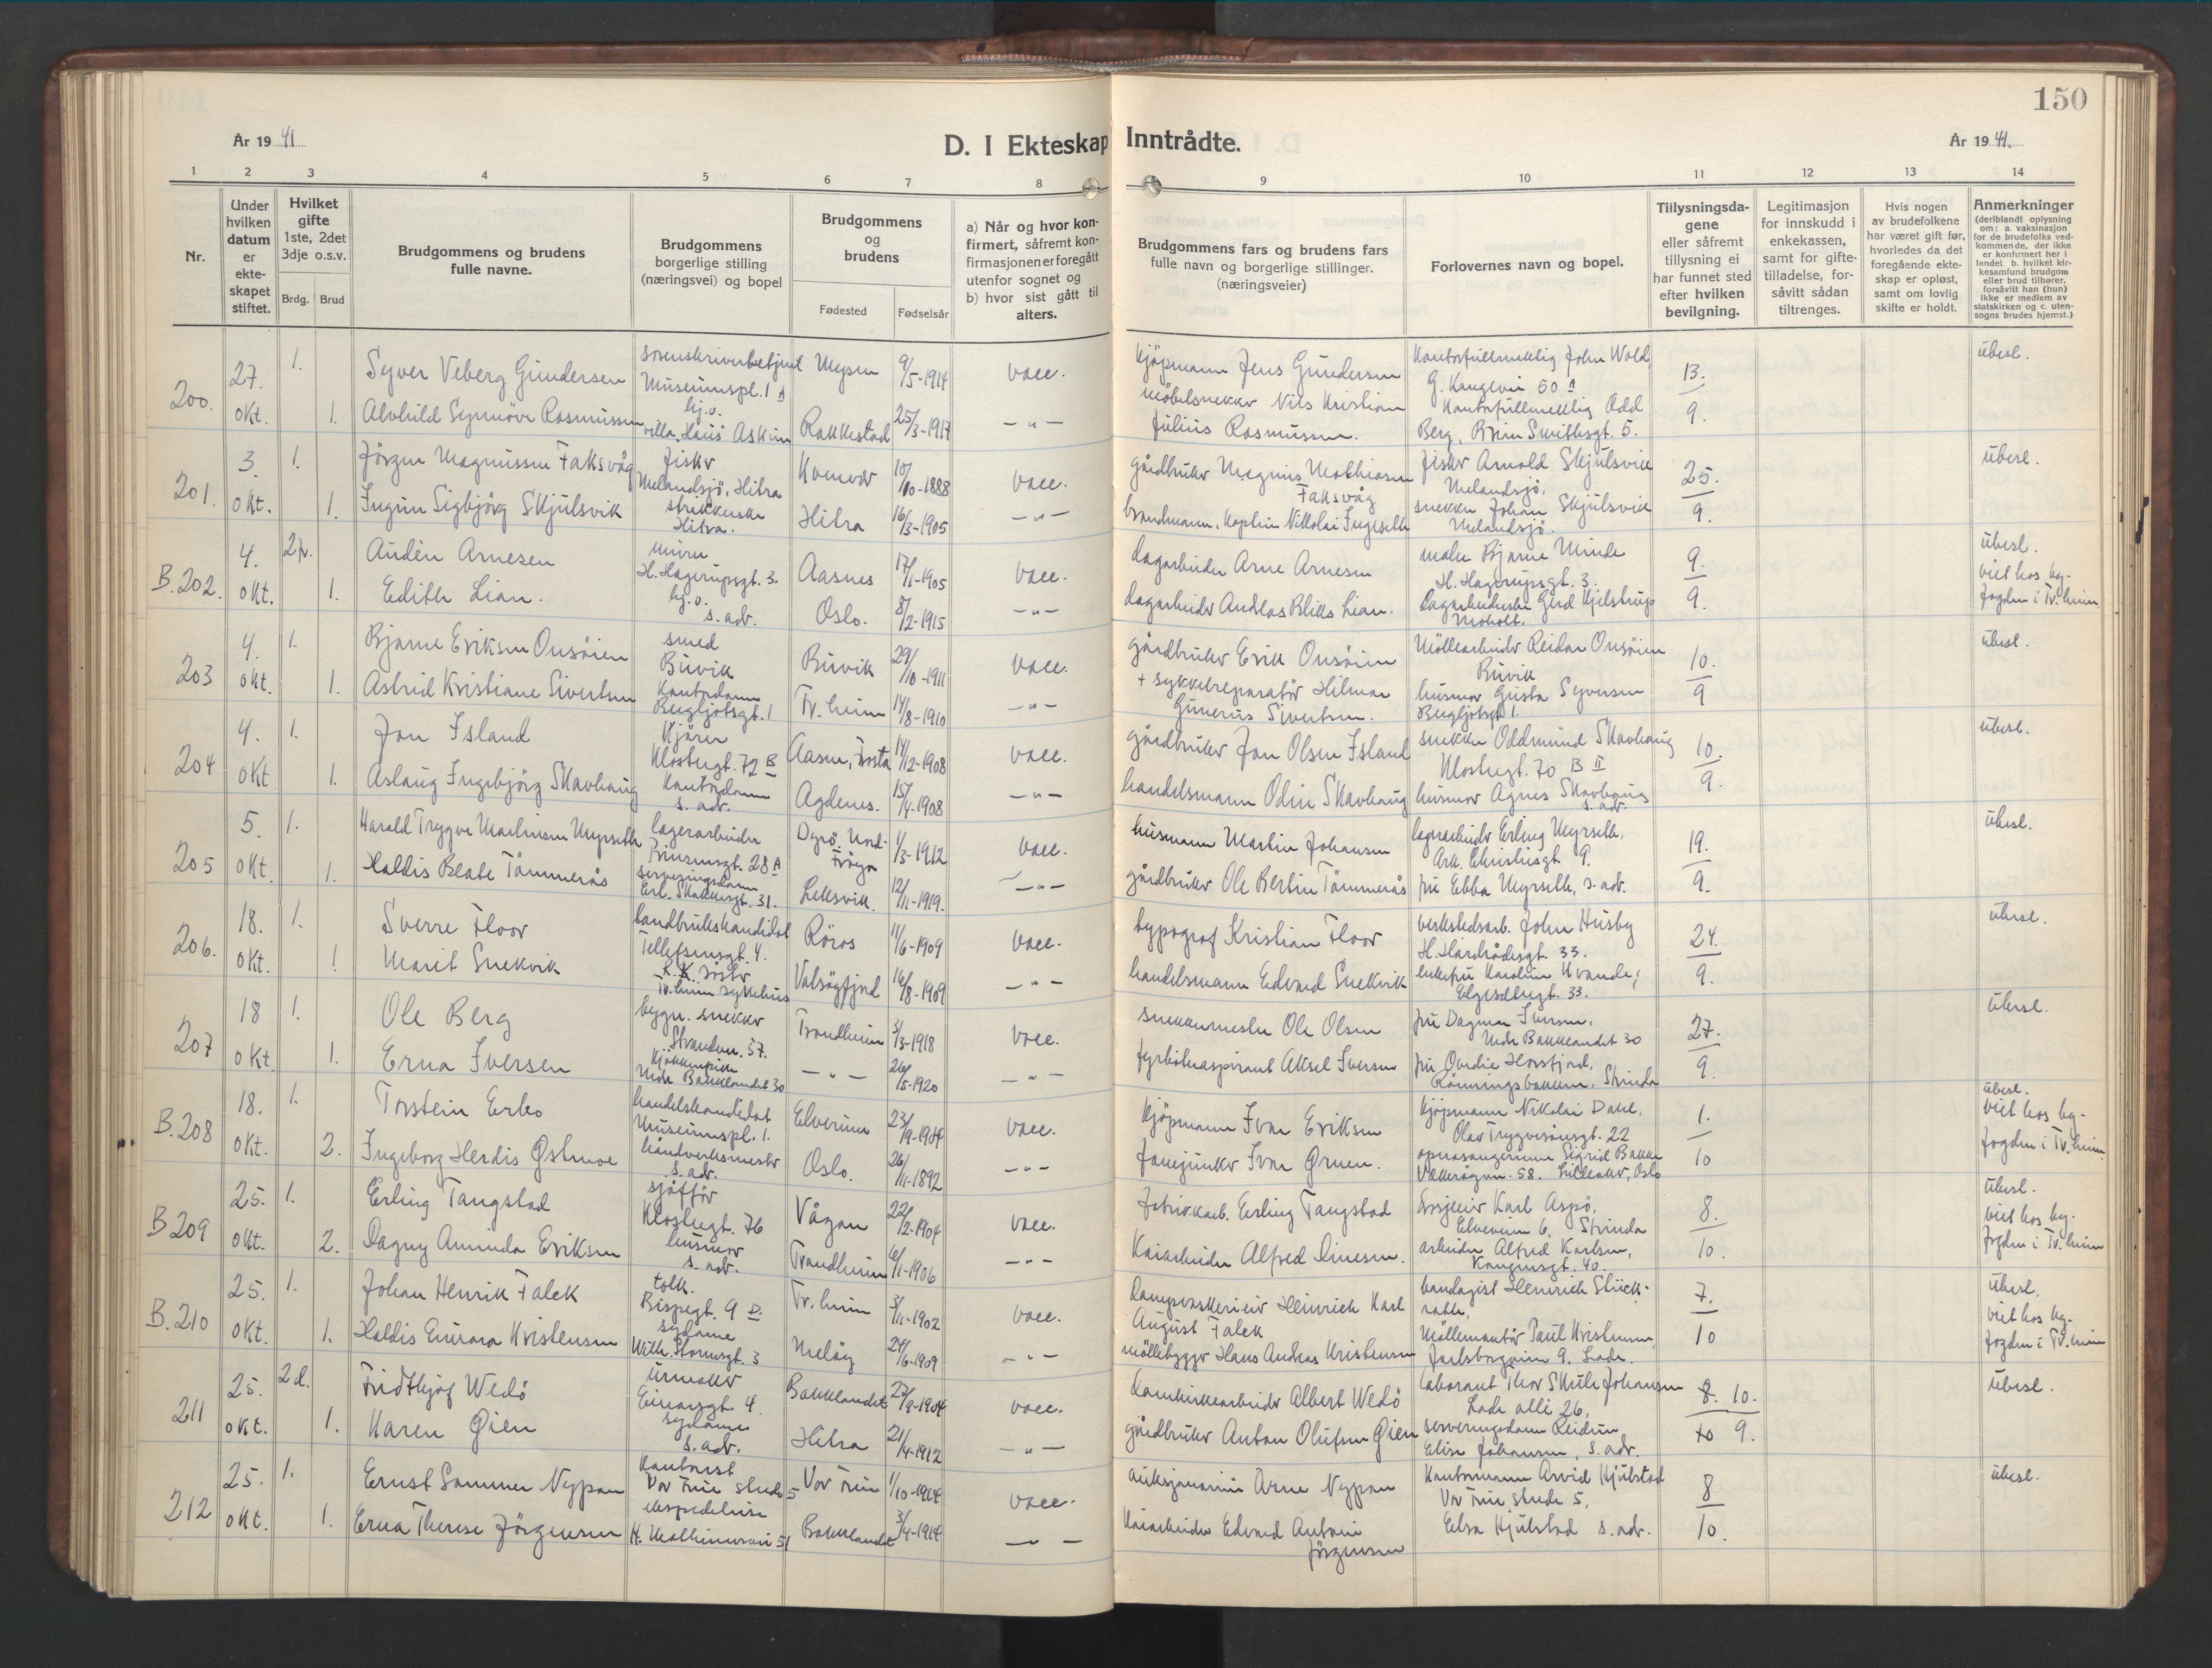 150
År 1941
D. I Ekteskap Inntrådte.
År 1941.
1 2 3 4 5 6 7 8 9 10 11 12 13 14
Nr.
Under hvilken datum er ekte-skapet stiftet.
Hvilket gifte 1ste, 2det 3dje o.s.v.
Brdg. Brud
Brudgommens og brudens fulle navne.
Brudgommens borgerlige stilling (næringsvei) og bopel
Brudgommens og brudens
Fødested Fødselsår
a) Når og hvor kon-firmert, såfremt kon-firmasjonen er foregått utenfor sognet og b) hvor sist gått til alters.
Brudgommens fars og brudens fars fulle navn og borgerlige stillinger. (næringsveier)
Forlovernes navn og bopel.
Tillysningsda-gene eller såfremt tillysning ei har funnet sted efter hvilken bevilgning.
Legitimasjon for innskudd i enkekassen, samt for gifte-tilladelse, for-såvitt sådan tiltrenges.
Hvis nogen av brudefolkene har været gift før, hvorledes da det foregående ekte-skap er opløst, samt om lovlig skifte er holdt.
Anmerkninger (deriblandt oplysning om: a. vaksinasjon for de brudefolks ved-kommende, der ikke er konfirmert her i landet b. hvilket kir-kesamfund brudgom eller brud tilhører, forsåvitt han (hun) ikke er medlem av statskirken og c. uten-sogns brudes hjemst.)
200. 27. okt. 1. Syver Veberg Gundersen Museumspl. 1 A Mysen 9/5-1914 vacc. kjøpmann Jens Gundersen 13. ubesl.
1. Alvhild Synnöve Rasmussen Askim Rakkestad 25/3-1917 -"- möbelsnekker Nils Kristian Julius Rasmussen. kontorfullmektig Odd Berg, 9.
201. 3. okt. 1. Jörgen Magnussen Faksvåg fisker Melandsjö, Hitra Kvenvær 10/10-1888 vacc. gårdbruker Magnus Mathiasen Faksvåg fisker Arnold Skjulsvik Melandsjö. 25. ubesl.
1. Ingun Sigbjörg Skjulsvik strikkerske Hitra. Hitra 16/3-1905 -"- snekker Johan Skjulsvik Melandsjö. 9.
B.202. 4. okt. 2. Audèn Arnesen murer H. Hagerupsgt. 3. Aasnes 17/1-1905 vacc. dagarbeider Arne Arnesen maler Bjarne Minde H. Hagerupsgt. 3. 9. ubesl. viet hos by-fogden i Tr.heim
1. Edith Lian. hj.v. s. adr. Oslo. 8/2-1915 -"- dagarbeider Lian. Gerd Kjelstrup Moholt. 9.
203 4. okt. 1. Bjarne Eriksen Onsöien smed Buvik Buvik 29/10-1911 vacc. gårdbruker Erik Onsöien Möllearbeider Reidar Onsöien Buvik 10. ubesl.
1. Astrid Kristiane Sivertsen Kontordame Bergljotsgt. 1 Tr.heim 14/8-1910 -"- + sykkelreparatör Hilmar Gunerius Sivertsen. husmor Gusta Syversen Bergljotsgt 1. 9
204 4. okt 1. Jon Island Kjörer Klostergt. 72 B Aasen, Frosta 14/12-1908 vacc. gårdbruker Jon Olsen Island snekker Oddmund Skavhaug Klostergt. 70 B II 10. ubesl.
1. Aslaug Ingebjörg Skavhaug Kontordame s. adr. Agdenes. 15/4-1908 -"- handelsmann Odin Skavhaug husmor Agnes Skavhaug s. adr. 9.
205 5. okt. 1. Harald Trygve Martinsen Myrseth lagerarbeider Prinsensgt. 28 A 1/3-1912 vacc. husmann Martin Johansen lagerarbeider Erling Myrseth, Ark. Christiesgt 9. 19. ubesl.
1. Haldis Beate Tömmerås serveringsdame Erl. Skakkesgt. 31. Leksvik. 12/11-1919. -"- gårdbruker Ole Bertin Tömmerås fru Ebba Myrseth, s. adr. 9.
206. 18. okt. 1. Sverre Floor landbrukskandidat Tellefsensgt. 4. Röros 11/6-1909 vacc. typograf Kristian Floor verkstedsarb. John Husby H. Hårdrådesgt. 33. 24. ubesl.
1 Marit Snekvik R.K. söster Tr.heim sykehus Valsögfjord 16/8-1909 -"- handelsmann Edvard Snekvik enkefru Karoline Kvande, Elgesetergt. 33. 9.
207 18 okt 1. Ole Berg bygn. snekker Strandvn. 57. Trondheim 3/3-1918 vacc. snekkermester Ole Olsen fru Dagmar Iversen, Nedr Bakklandet 30 27. ubesl.
1. Erna Iversen kjökkenpike Nedr Bakklandet 30 -"- 26/5-1920 -"- fyrböteraspirant Aksel Iversen fru Ovedie Horsfjord, Rönningsbakken, Strinda 9.
B.208 18. okt. 1. Torstein Erbo handelskandidat Museumspl. 1. Elverum 23/9-1904 vacc. Kjöpmann Ivar Eriksen Kjöpmann Nikolai Dahl, Olav Trygvesönsgt. 22 1. ubesl. viet hos by-fogden i Tr.heim
2. Ingeborg Herdis Østmoe håndverksmester s. adr. Oslo. 26/11-1892 -"- operasangerinne Sigrid Bakke 58. Lilleaker, Oslo 10
B 209 25. okt. 1. Erling Tangstad sjåfför Klostergt. 76 Vågan 22/2-1904 vacc. Fabrikkarb. Erling Tangstad Karl Aspö, Elveveien 6, Strinda 8. ubesl. viet hos by-fogden i Tr.heim
2. Dagny Aminda Eriksen husmor s. adr. Trondheim 6/1-1906 -"- Kaiarbeider Alfred Dinesen. arbeider Alfred Karlsen, Kongensgt. 40. 10.
B.210 25. okt. 1. Johan Henrik Falck tolk. Bispegt. 9 D. Tr.heim 3/11-1902 vacc. Dampvaskerieier Heinrich Karl August Falck bandagist Henrich Stück-rahth. 7. ubesl. viet hos by-fogden i Tr.heim
1. Haldis Kristensen sydame Meløy 24/6-1909 -"- möllebygger Hans Andreas Kristensen Möllemontör Paul Kristensen, Jarlsborgveien 9, Lade. 10
211 25. okt. 2d. Fridthjof Wedö urmaker Einarsgt. 4. Bakklandet 27/9-1904 vacc. Albert Wedö laborant Thor Skule Johansen Lade allé 26, 8. 10. ubesl.
1. Karen Øien sydame s. adr. Hitra 21/4-1912 -"- gårdbruker Anton Olufsen Øien serveringsdame Reidun Elise Johansen, s. adr. 10 9.
212 25. okt. 1. Ernst Sommer Nypan kontorist Vor Frue strede 5 Vor Frue 1/10-1914 vacc. Arne Nypan Kontormann Arvid Kjelstad Vor Frue strede 5, 8 ubesl.
1. Erna Therese Jörgensen ekspeditrise 51 Bakklandet 3/4-1914 -"- Kaiarbeider Edvard Antoni Jörgensen Elsa Kjelstad s. adr. 10.